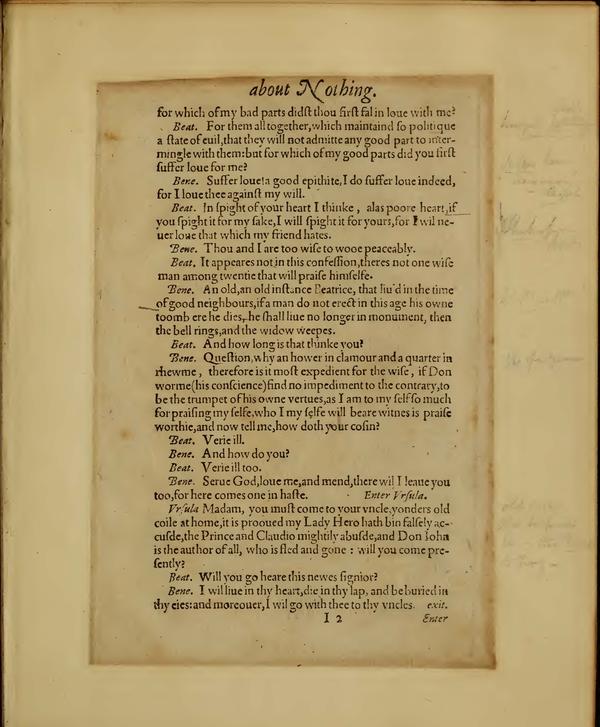 about Nothing.
for which of my bad parts didſt thou firſt fal in loue with me?
Beat. For them all together, which maintaind ſo politique
a ſtate of euil, that they will not admitte any good part to inter-
mingle with them: but for which of my good parts did you firſt
ſuffer loue for me?
Bene. Suffer loue! a good epithite, I do ſuffer loue indeed,
for I loue thee againſt my will.
Beat. In ſpight of your heart I thinke, alas poore heart, if
you ſpight it for my ſake, I will ſpight it for yours, for I wil ne-
uer loue that which my friend hates.
Bene. Thou and I are too wiſe to wooe peaceably.
Beat. It appeares not in this confeſſion, theres not one wiſe
man among twentie that will praiſe himſelfe.
Bene. An old, an old inſtance Beatrice, that liu'd in the time
of good neighbours, if a man do not erect in this age his owne
toomb ere he dies, he ſhall liue no longer in monument, then
the bell rings, and the widow weepes.
Beat. And how long is that thinke you?
Bene. Queſtion, why an hower in clamour and a quarter in
rhewme, therefore is it moſt expedient for the wiſe, if Don
worme (his conſcience) find no impediment to the contrary, to
be the trumpet of his owne vertues, as I am to my ſelf ſo much
for praiſing my ſelfe, who I my ſelfe will beare witnes is praiſe
worthie, and now tell me, how doth your coſin?
Beat. Verie ill.
Bene. And how do you?
Beat. Verie ill too.
Bene. Serue God, loue me, and mend, there wil I leaue you
too, for here comes one in haſte. Enter Vrſula.
Vrſula Madam, you muſt come to your vncle, yonders old
coile at home, it is prooued my Lady Hero hath bin falſely ac-
cuſde, the Prince and Claudio mightily abuſde, and Don Iohn
is the author of all, who is fled and gone: will you come pre-
ſently?
Beat. Will you go heare this newes ſignior?
Bene. I wil liue in thy heart, die in thy lap, and be buried in
thy eies: and moreouer, I wil go with thee to thy vncles. exit.
I 2 Enter